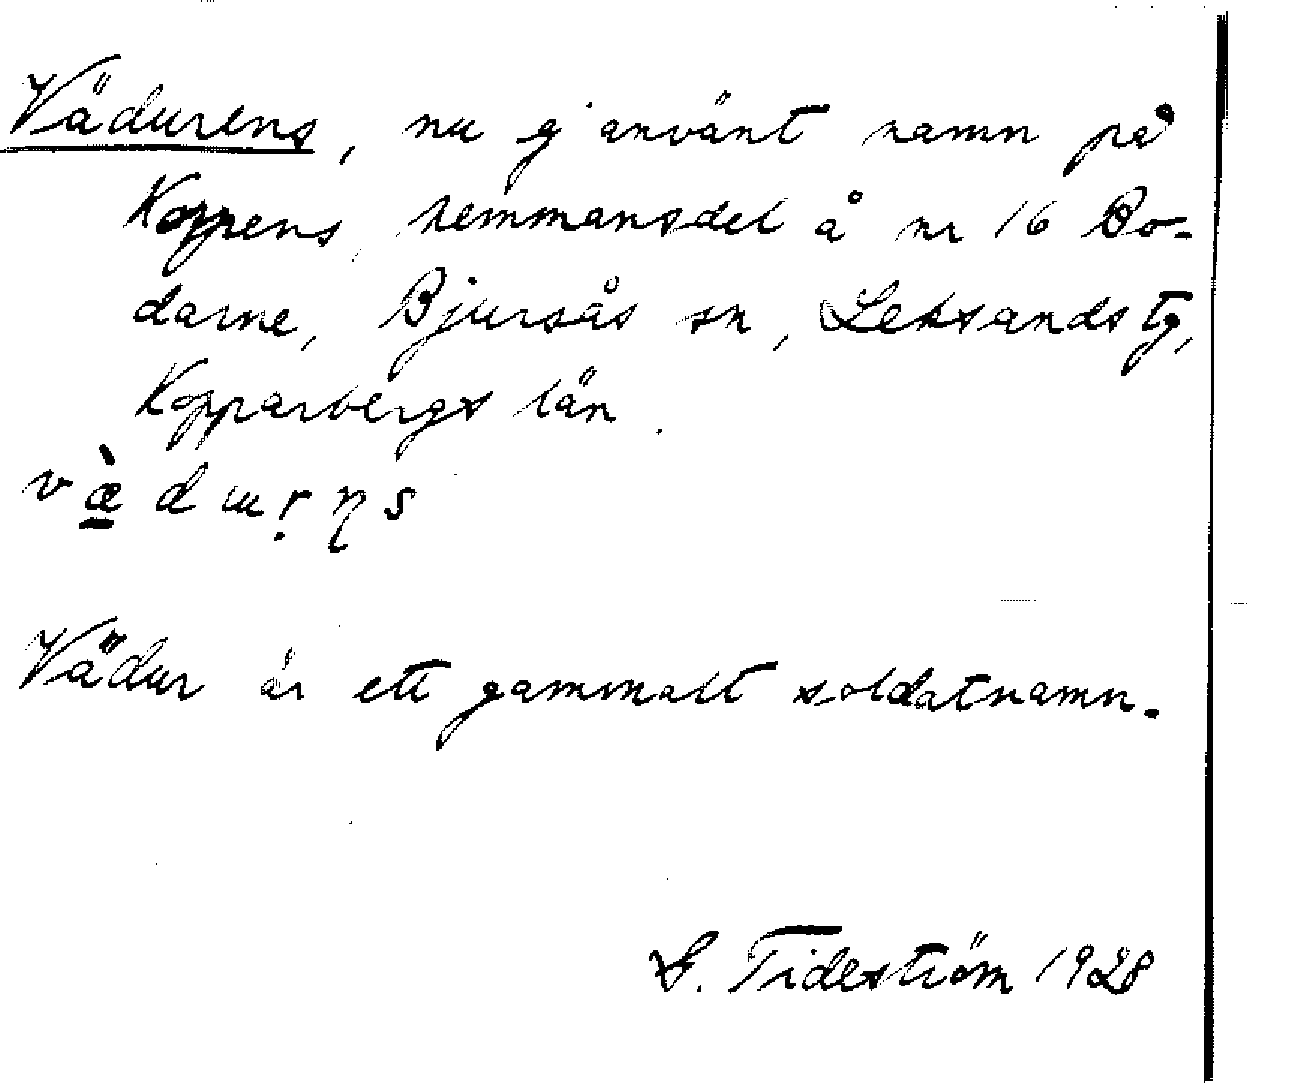 Vädurens, nu ej använt namn på
Koppens, hemmansdel å nr 16 Bo-
darne, Bjursås sn, Leksands tg,
Kopparbergs län.
væ̀dɯrn̥s
Vädur är ett gammalt soldatnamn.
G. Tideström 1928